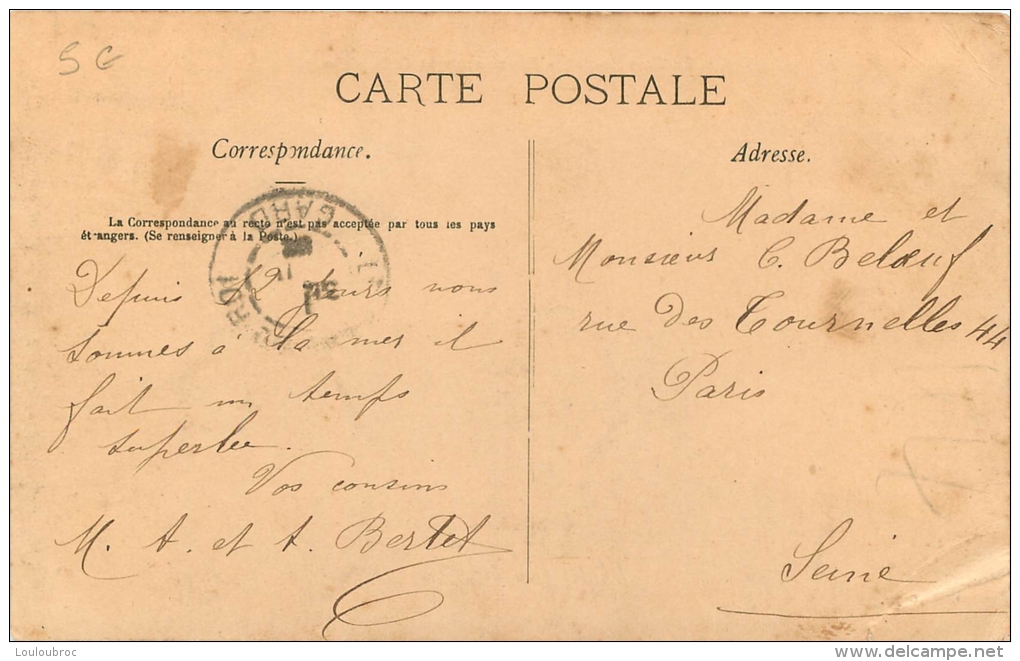 5 G
CARTE POSTALE
Correspondance.
La Correspondance au recto n'est pas acceptée par tous les pays
étrangers. (Se renseigner à la Poste.)
GARD
Depuis 12 jours nous
sommes à la mer il
fait un temps
superbe.
Vos cousins
M. A. et A. Bertet
Adresse.
Madame et
Monsieur C. Belœuf
rue des Tournelles 44
Paris
Seine
Louloubroc
delcampe.net